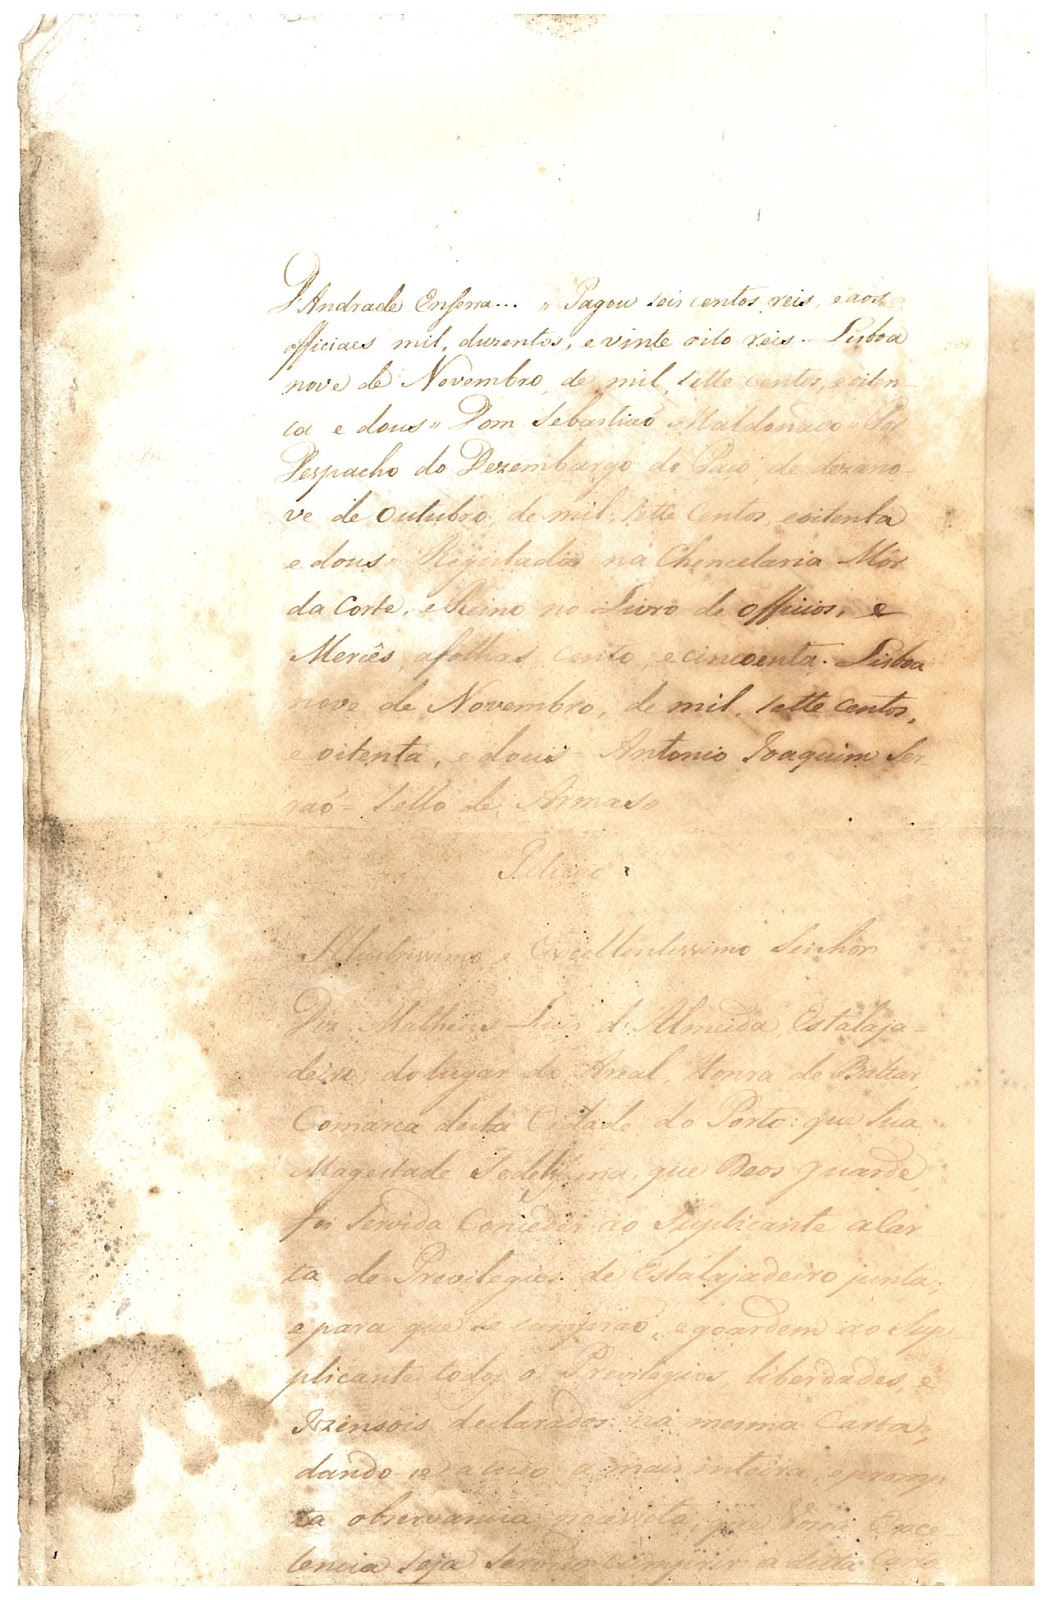 D'Andrade Enserra... " Pagou seis centos reis, e aos
officiaes mil, duzentos, e vinte oito reis. Lisboa
nove de Novembro, de mil, sette centos, e oiten-
ta e dous " Dom Sebastiaõ Maldonado " Por
Despacho do Dezembargo do Paço, de dezano-
ve de Outubro, de mil, sette centos, eoitenta
e dous " Registada na Chencelaria Mór
da Corte, e Reino no Livro de officios, e
Mercês, afolhas, cento, e cincoenta. Lisboa
nove de Novembro, de mil, sette centos,
e oitenta, e dous = Antonio Joaquim Ser
raõ = Sello de Armas "
Petiçaõ
Illustrissimo e Excellentissimo Senhor
Diz Matheus Luis d'Almeida, Estalaja-
deiro, do lugar do Areal, Honra de Baltar,
Comarca desta Cidade do Porto: que Sua
Magestade Fedelissima, que Deos guarde,
foi Servida Conceder ao Suplicante a Car
ta de Previlegios de Estalajadeiro junta,
e para que se cumpraõ, e goardem ao Sup-
plicante todos os Previlegios liberdades, e
Izensois declarados na mesma Carta,
dando-se a tudo a mais inteira, e promp-
ta observancia, necessita, que Vossa Exce-
lencia seja Servido cumprir a